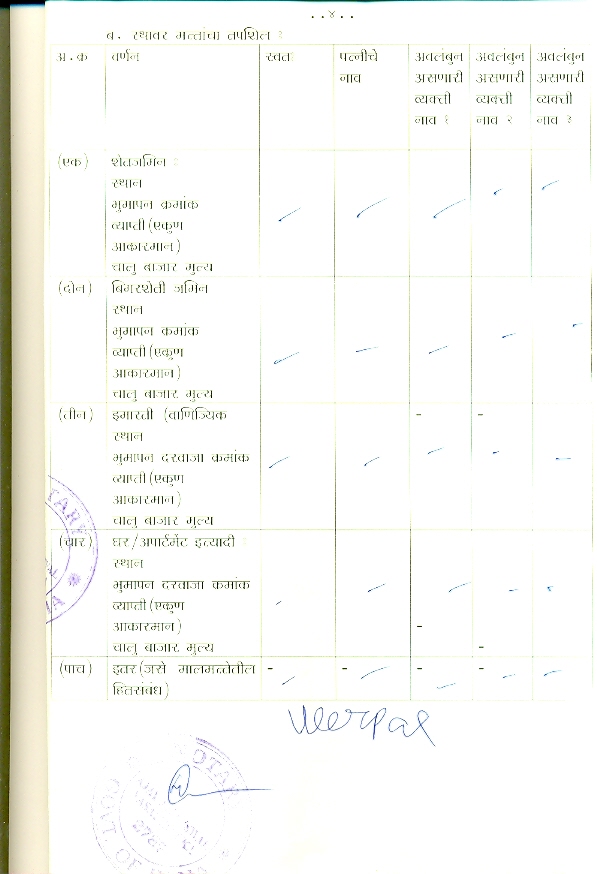 ..४..
ब. स्थावर मत्तांचा तपशिल :
अ.क्र वर्णन स्वतः पत्नीचे अवलंबुन अवलंबुन अवलंबुन
नाव असणारी असणारी असणारी
व्यक्ती व्यक्ती व्यक्ती
नाव १ नाव २ नाव ३
(एक) शेतजमिन :
स्थान
भुमापन क्रमांक
व्याप्ती(एकुण
आकारमान)
चालु बाजार मुल्य
(दोन) बिगरशेती जमिन
स्थान
भुमापन क्रमांक
व्याप्ती(एकुण
आकारमान)
चालु बाजार मुल्य
(तीन) इमारती (वाणिज्यिक - -
स्थान
भुमापन दरवाजा क्रमांक
व्याप्ती(एकुण
आकारमान)
चालु बाजार मुल्य
(चार) घर/अपार्टमेंट इत्यादी :
स्थान
भुमापन दरवाजा क्रमांक
व्याप्ती(एकुण
आकारमान) -
चालु बाजार मुल्य -
(पाच) इतर(जसे मालमत्तेतील - - - -
हितसंबंध)